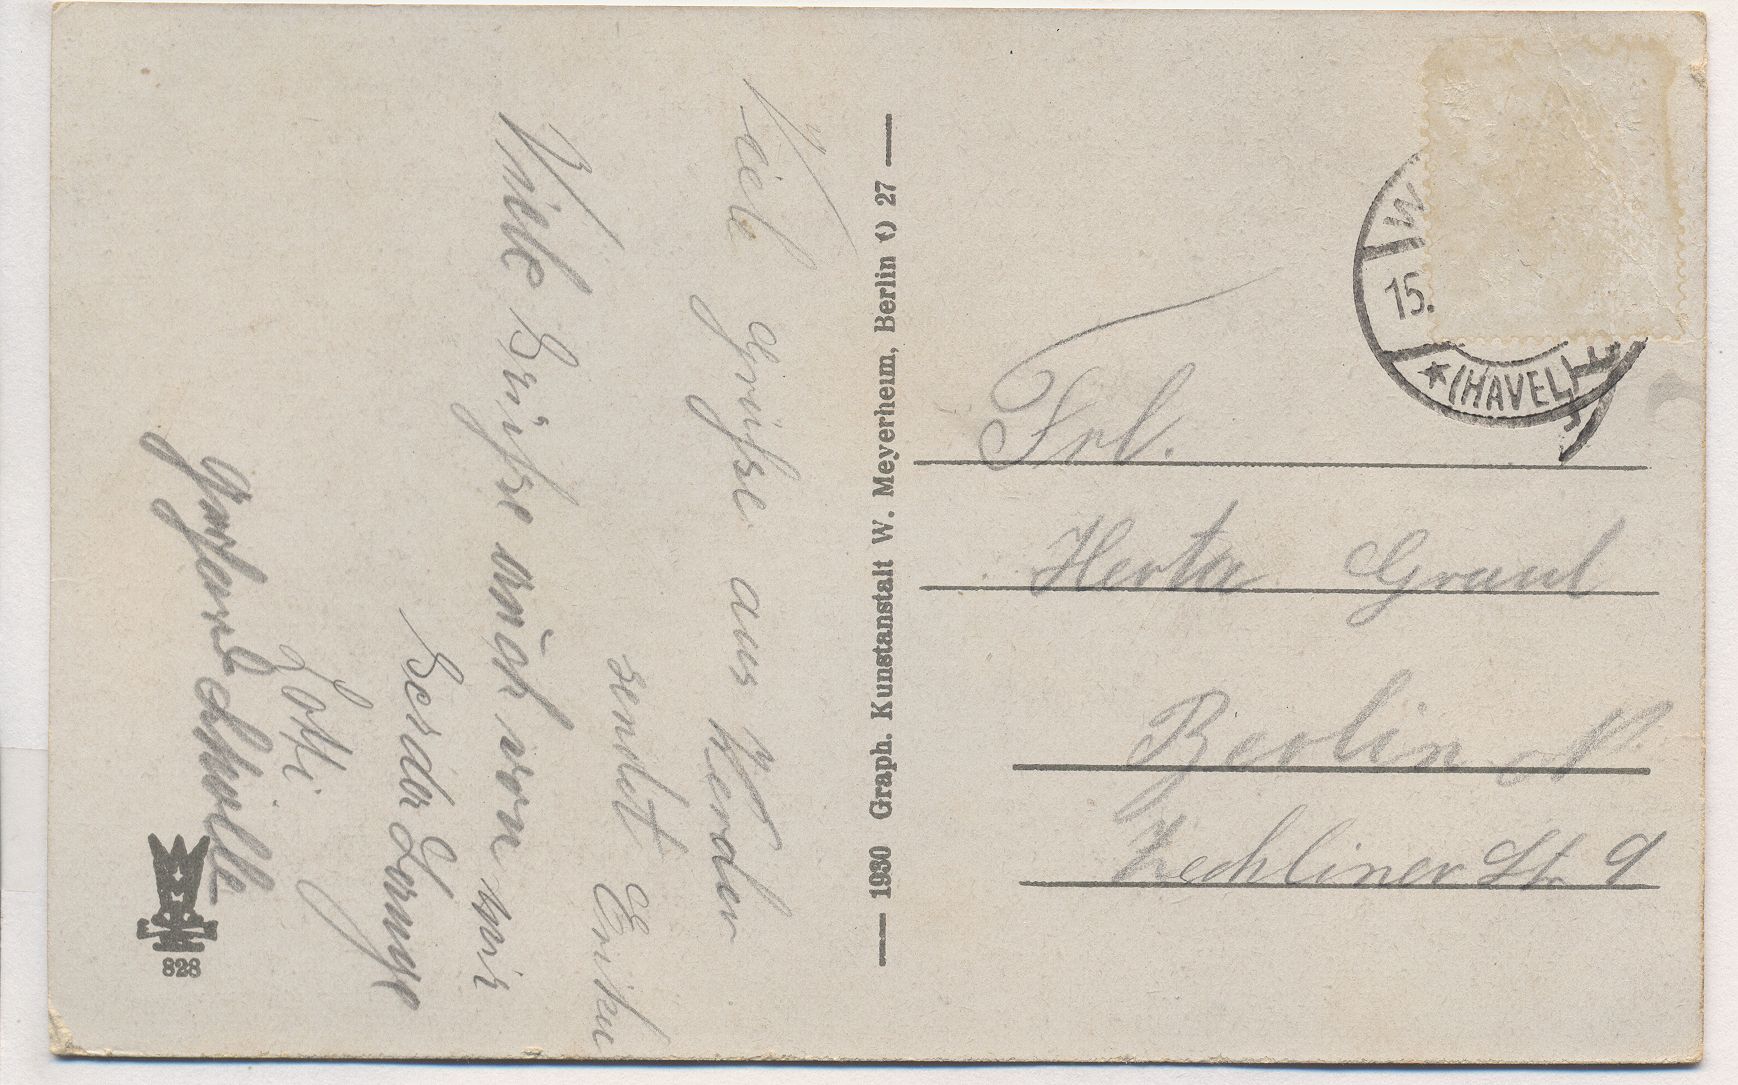 Viele Grüße aus Werder
sendet Erika
Viele Grüße auch von mir
Gerda
Lotti
Gerhard
1930 Graph. Kunstanstalt W. Meyerheim, Berlin O 27
828
W
15.
*(HAVEL)
Frl.
Herta Graul
Berlin N.
Zechliner St. 9